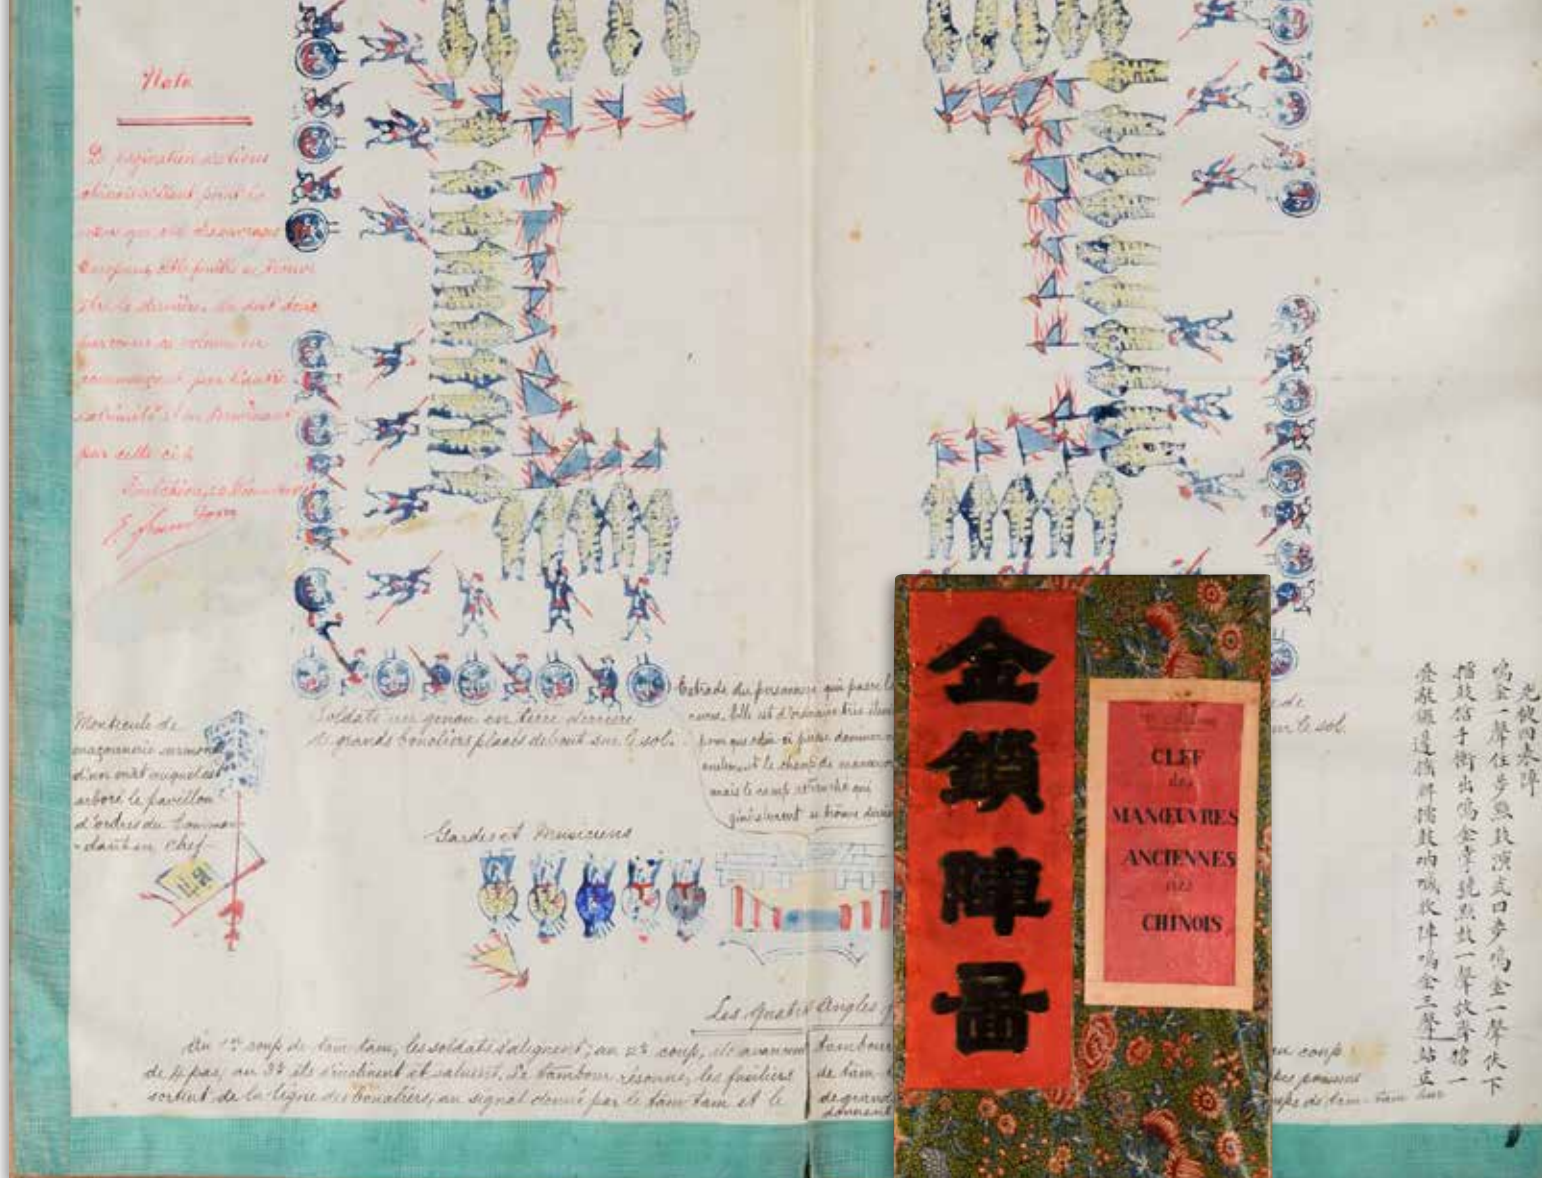 Note
La pagination des livres
chinois n'étant point la
même que celle des ouvrages
Européens, cette feuille se trouve
être la dernière. On doit donc
parcourir ce volume en
commençant par l'autre
extrémité et en terminant
par celle ci.
Monticule de
maçonnerie surmonté
d'un mât auquel est
arboré le pavillon
d'ordres du Comman
-dant en Chef
Soldats un genou en terre derrière
de grands boucliers placés debout sur le sol.
Estrade du personnage qui passe la
revue. Elle est d'ordinaire très élevée
pour que celui ci puisse dominer non
seulement le champ de manœuvres
mais le camp retranché qui
généralement se trouve derrière
de
sur le sol.
Gardes et Musiciens
Les Quatre Angles
Au 1er coup de tam-tam, les soldats s'alignent; au 2e coup, ils avancent
de 4 pas, au 3e ils s'inclinent et saluent. Le tambour résonne, les fusiliers
sortent de la ligne des boucliers, au signal donné par le tam-tam et le
tambour
de tam-
de grand
donnent
au coup
des poussent
coups de tam-tam sur
金鎖陣啚
CLEF
des
MANŒUVRES
ANCIENNES
des
CHINOIS
先放四奉陣
鳴金一聲住步點鼓演式四步鳴金一聲伏下
擂鼓銃手衝出鳴金掌號點鼓一聲放齊鎗一
疊敲鑼邊擂牌擂鼓吶喊收陣鳴金三聲站立